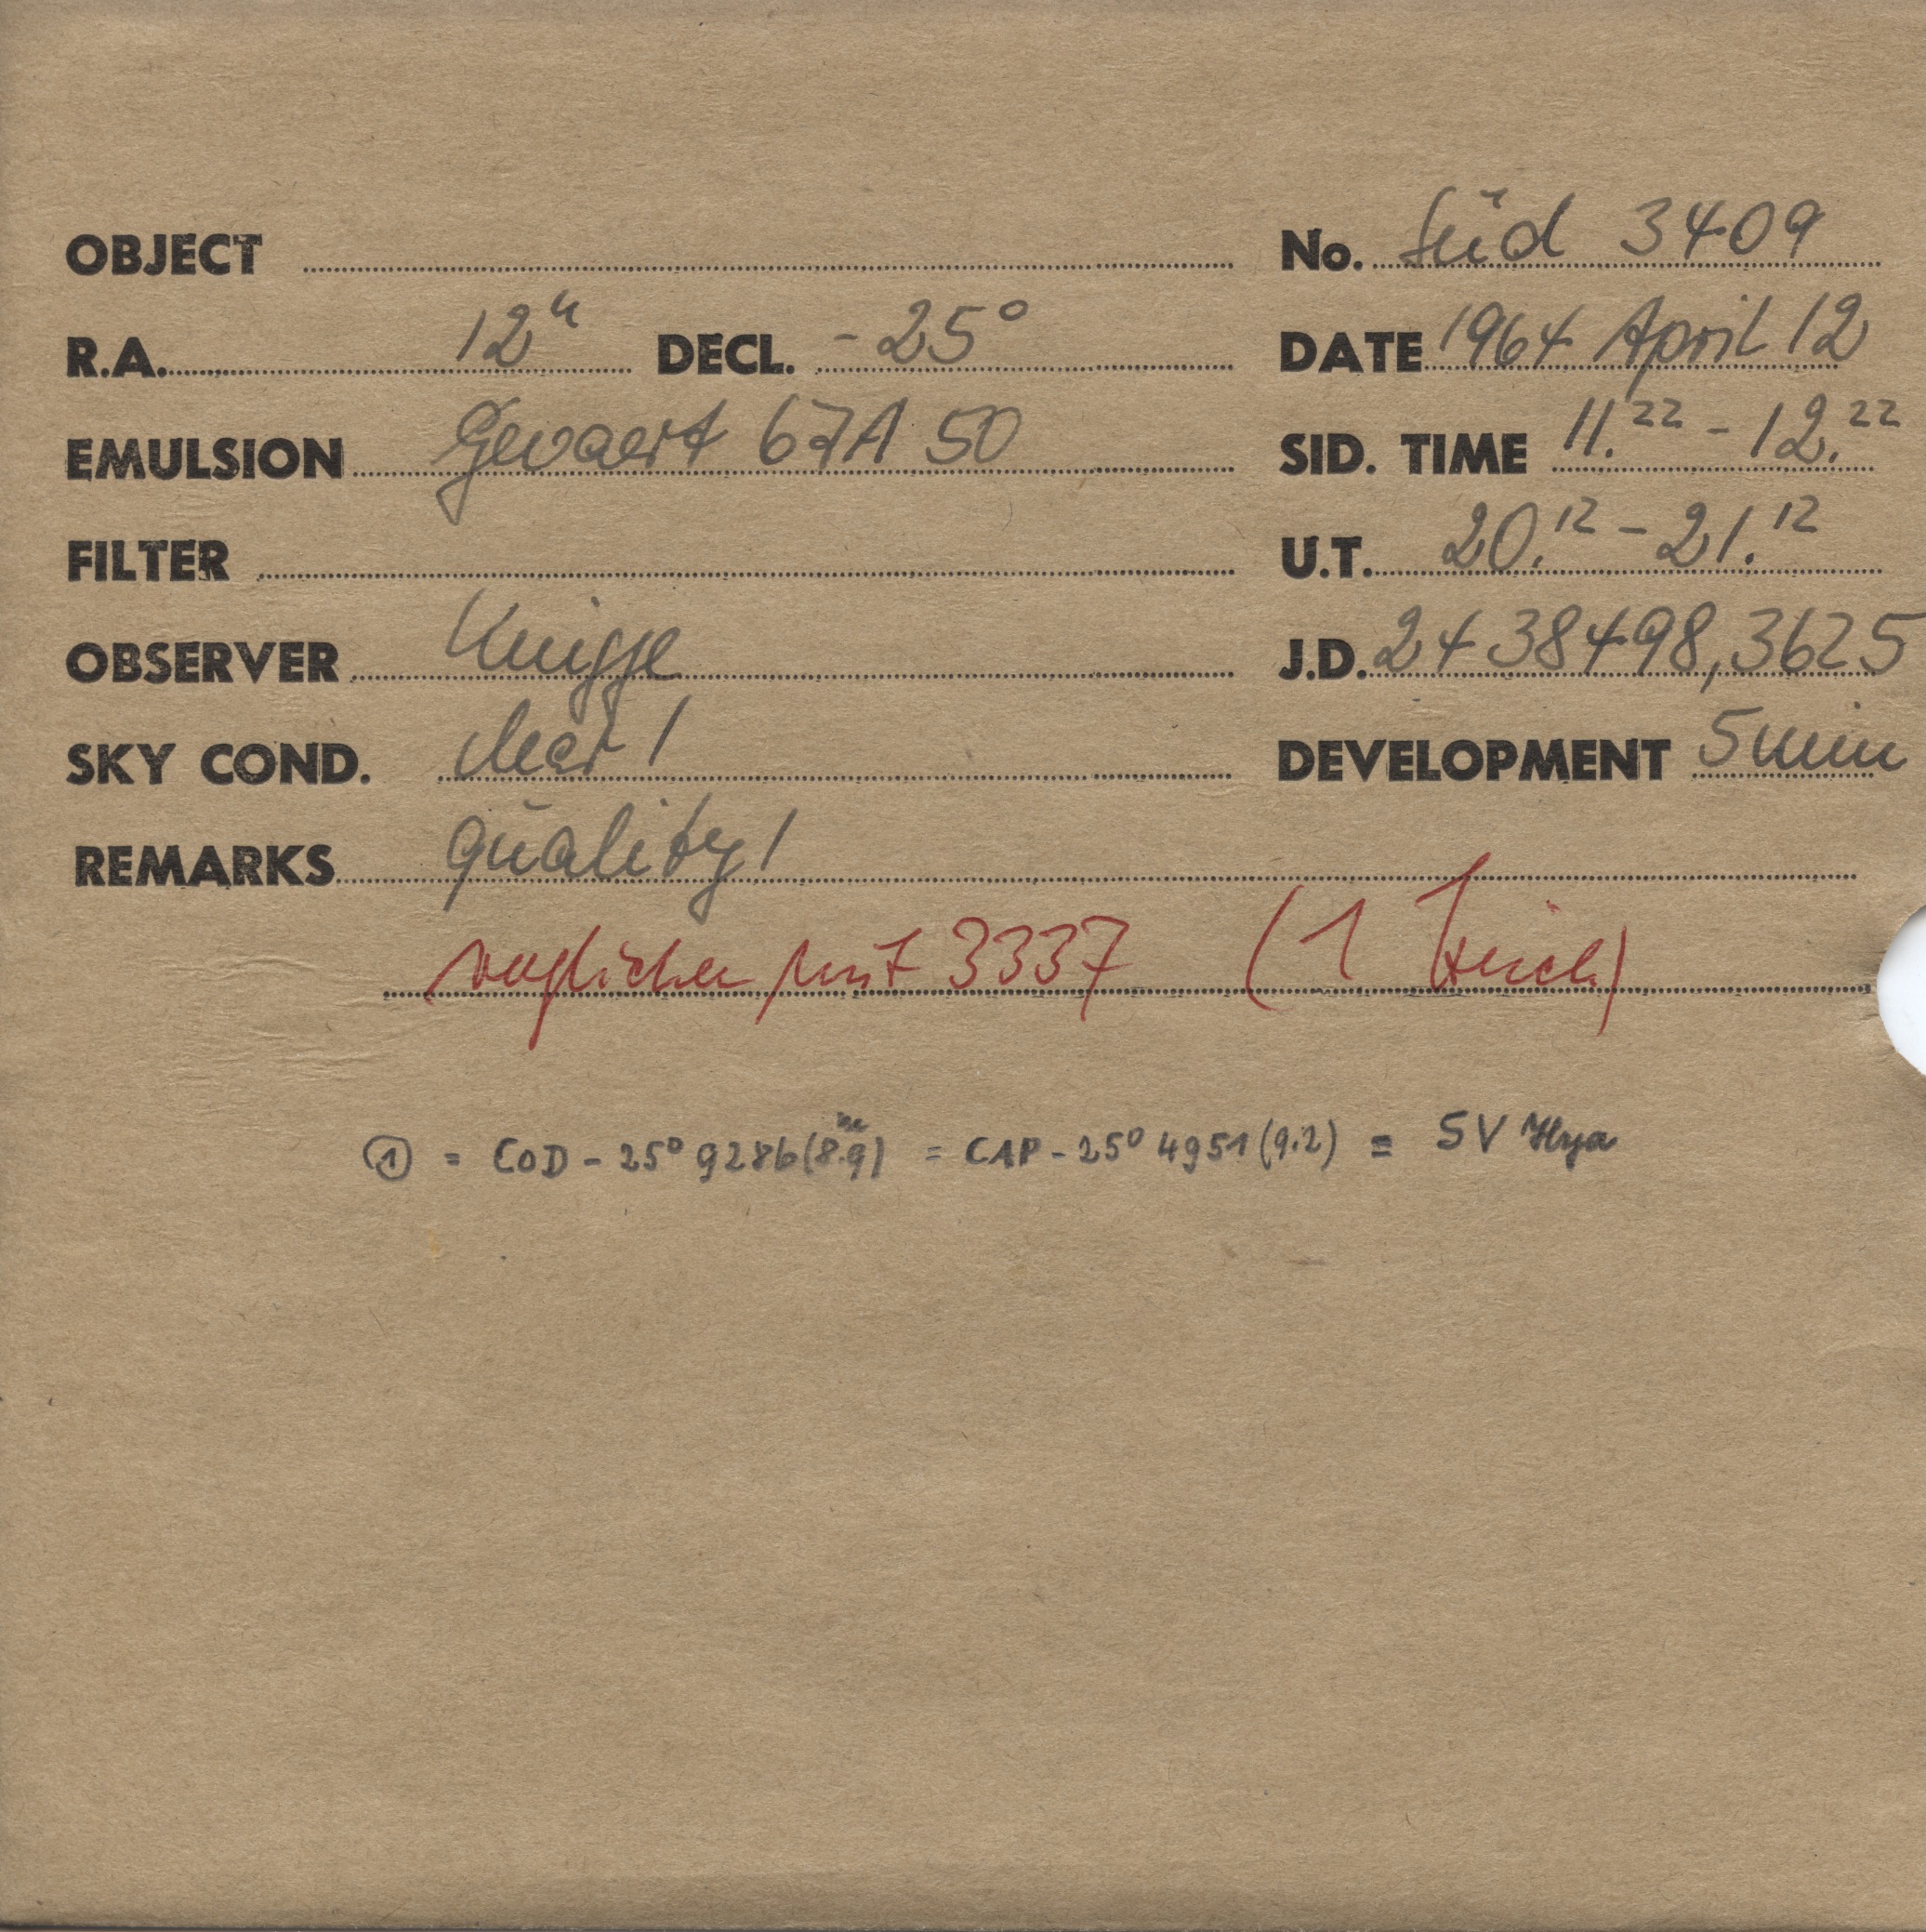 OBJECT No. Süd 3409
R.A. 12h DECL. -25° DATE 1964 April 12
EMULSION Gevaert 67A 50 SID. TIME 11.22 - 12.22
FILTER U.T. 20.12 - 21.12
OBSERVER Knigge J.D. 2438498,3625
SKY COND. clear 1 DEVELOPMENT 5 min
REMARKS quality 1
verglichen mit 3337 (1
① = CoD - 25° 9286 (8.9) = CAP - 25° 4951 (9.2) = SV Hya